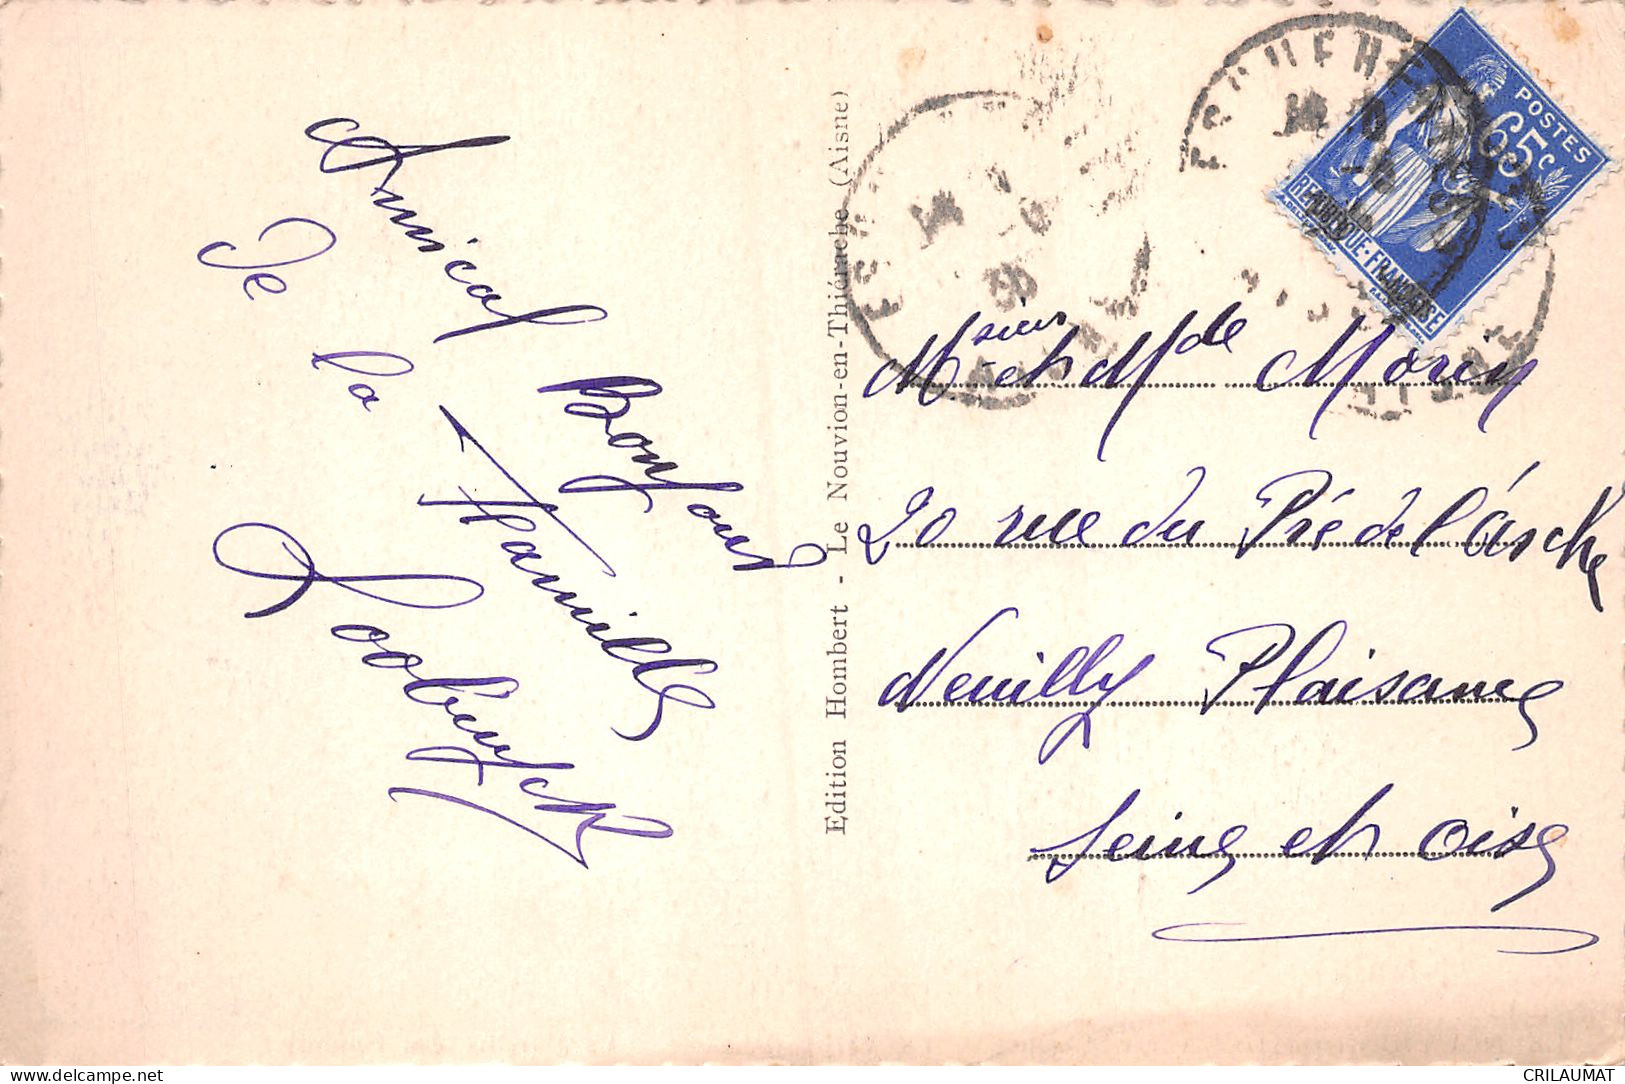 Amical Bonjour
De la Famille
Edition Hombert - Le Nouvion-en-Thiérache (Aisne)
POSTES
65c
REPUBLIQUE-FRANÇAISE
ESQUEHERIES
AISNE
Msieur et Mde Morin
20 rue du Pré de l'arche
Neuilly Plaisance
Seine et Oise
CRILAUMAT